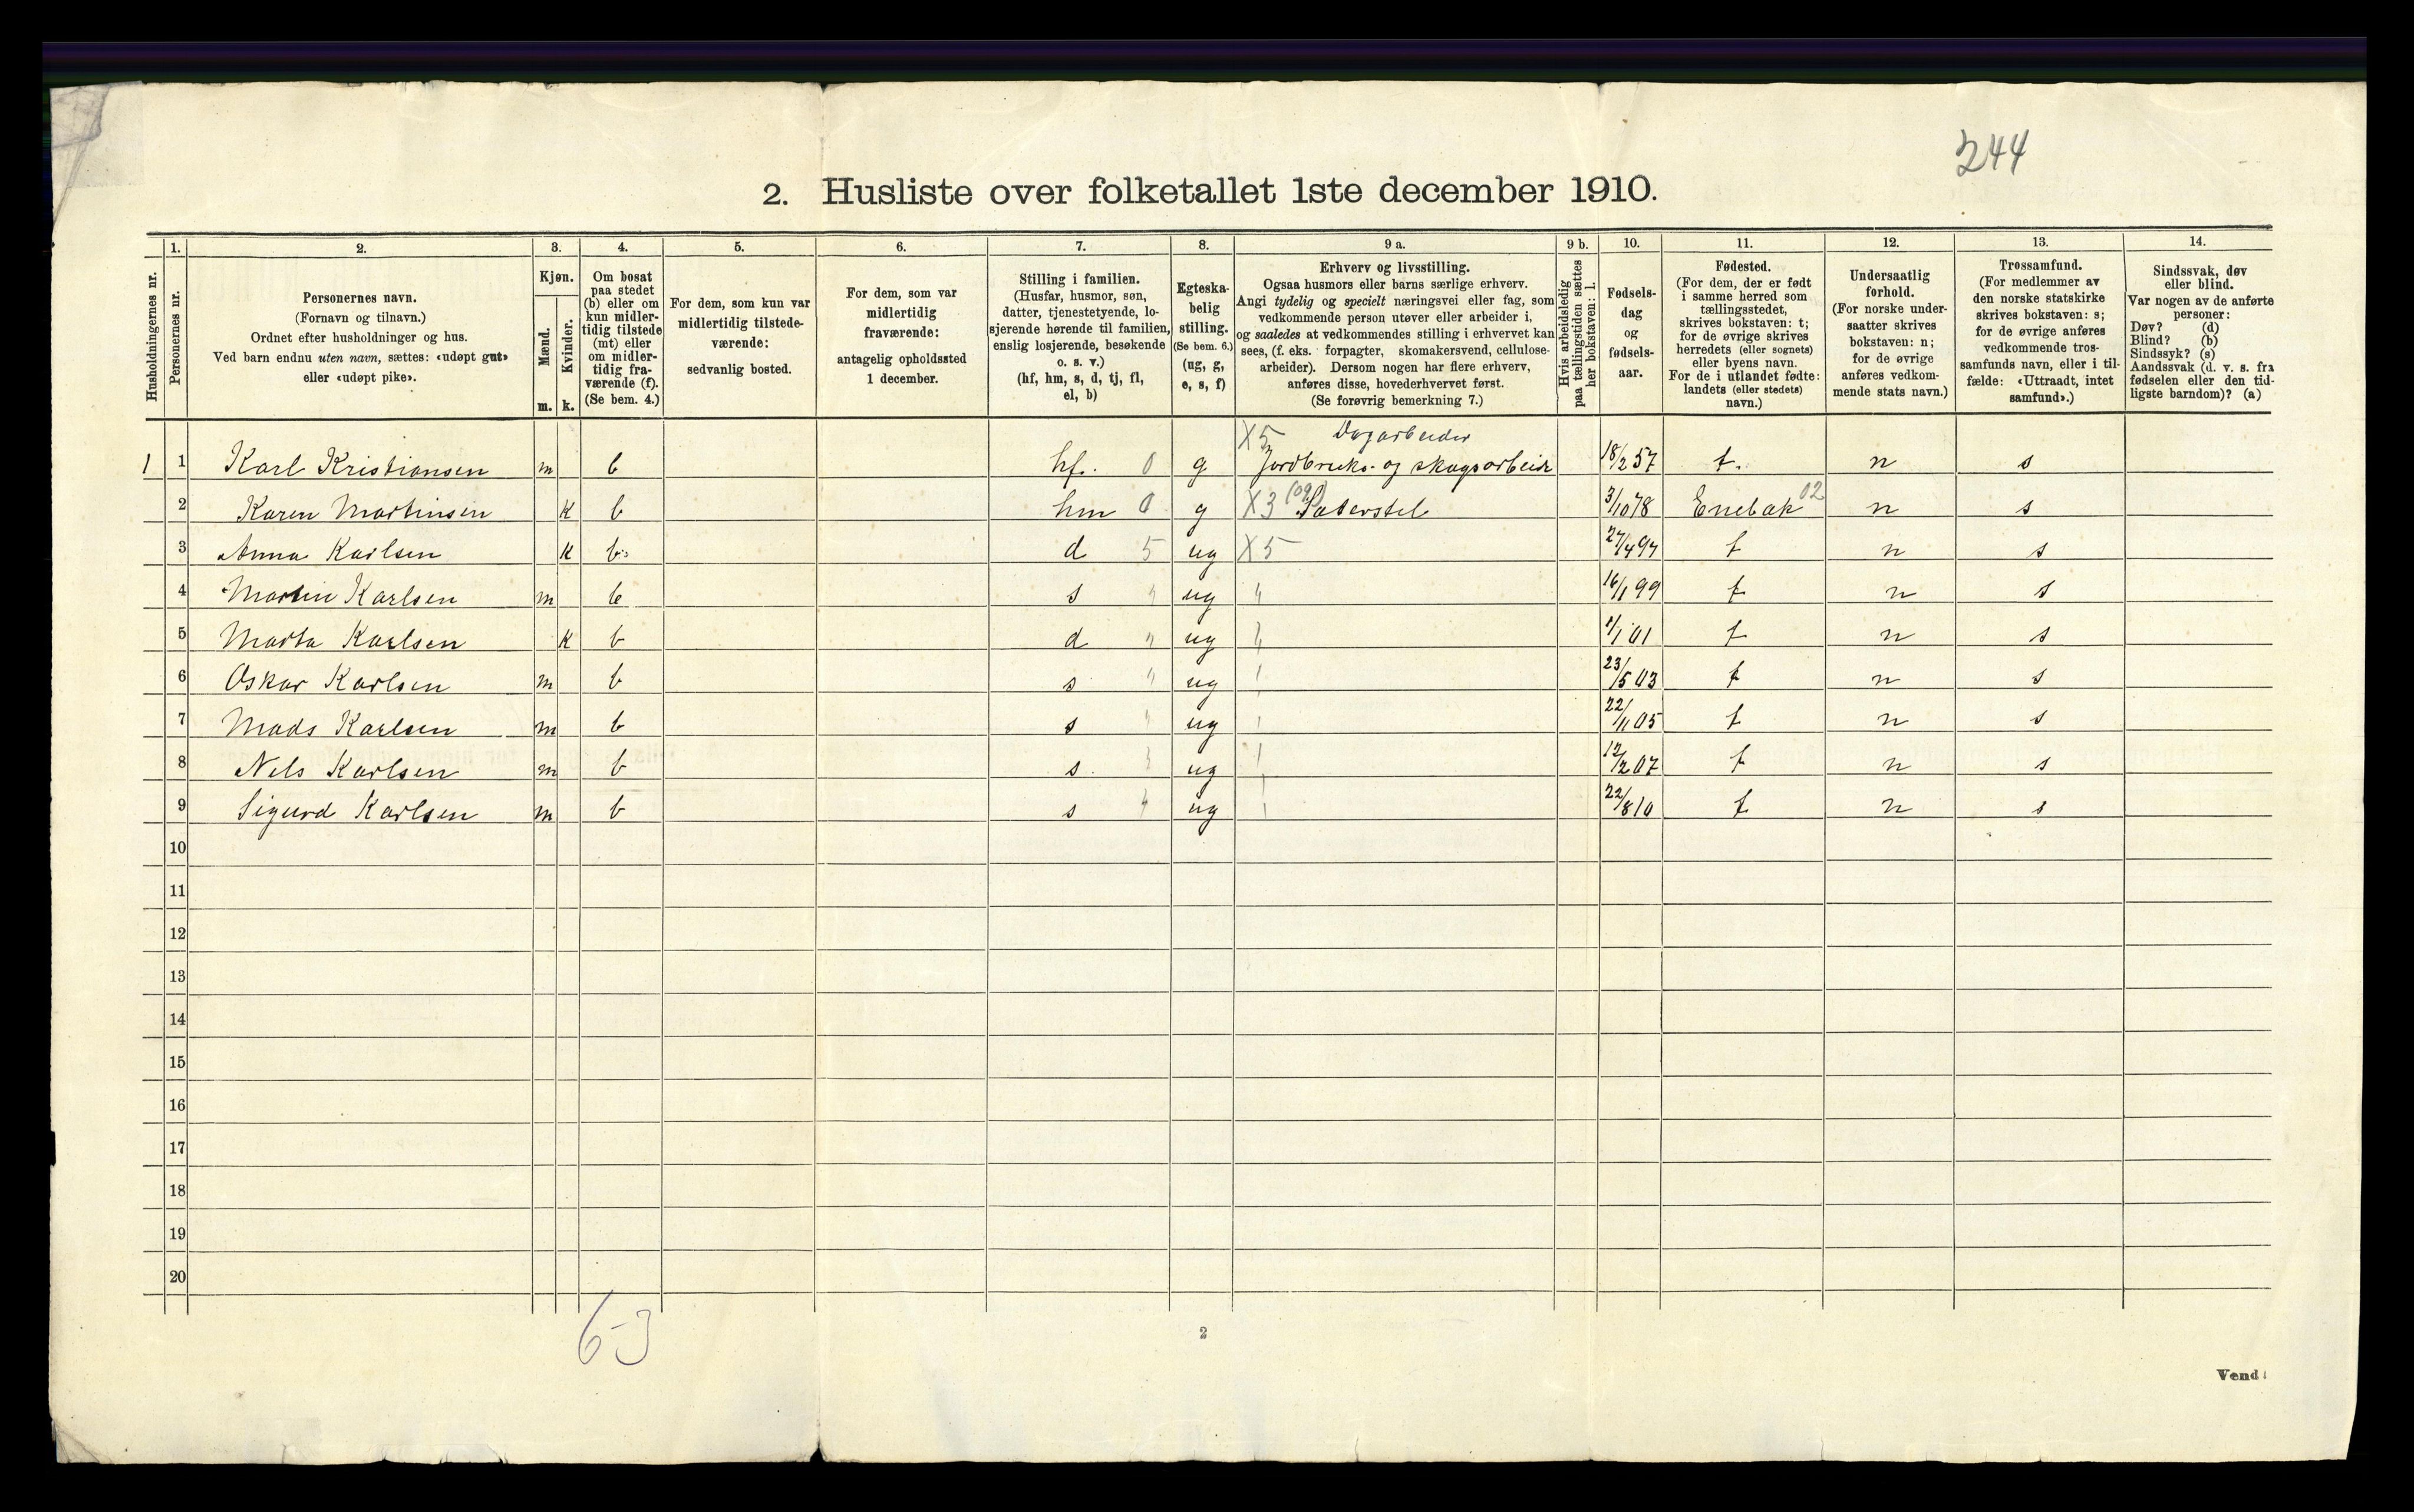 244
2. Husliste over folketallet 1ste december 1910.
Husholdningernes nr.
1.
Personernes nr.
2.
Personernes navn.
(Fornavn og tilnavn.)
Ordnet efter husholdninger og hus.
Ved barn endnu uten navn, sættes: «udøpt gut»
eller «udøpt pike».
3.
Kjøn.
Mænd.
Kvinder.
m. k.
4.
Om bosat
paa stedet
(b) eller om
kun midler-
tidig tilstede
(mt) eller
om midler-
tidig fra-
værende (f).
(Se bem. 4.)
5.
For dem, som kun var
midlertidig tilstede-
værende:
sedvanlig bosted.
6.
For dem, som var
midlertidig
fraværende:
antagelig opholdssted
1 december.
7.
Stilling i familien.
(Husfar, husmor, søn,
datter, tjenestetyende, lo-
sjerende hørende til familien,
enslig losjerende, besøkende
o. s. v.)
(hf, hm, s, d, tj, fl,
el, b)
8.
Egteska-
belig
stilling.
(Se bem. 6.)
(ug, g,
e, s, f)
9 a.
Erhverv og livsstilling.
Ogsaa husmors eller barns særlige erhverv.
Angi tydelig og specielt næringsvei eller fag, som
vedkommende person utøver eller arbeider i,
og saaledes at vedkommendes stilling i erhvervet kan
sees, (f. eks. forpagter, skomakersvend, cellulose-
arbeider). Dersom nogen har flere erhverv,
anføres disse, hovederhvervet først.
(Se forøvrig bemerkning 7.)
9 b.
Hvis arbeidsledig
paa tællingstiden sættes
her bokstaven: l.
10.
Fødsels-
dag
og
fødsels-
aar.
11.
Fødested.
(For dem, der er født
i samme herred som
tællingsstedet,
skrives bokstaven: t;
for de øvrige skrives
herredets (eller sognets)
eller byens navn.
For de i utlandet fødte:
landets (eller stedets)
navn.)
12.
Undersaatlig
forhold.
(For norske under-
saatter skrives
bokstaven: n;
for de øvrige
anføres vedkom-
mende stats navn.)
13.
Trossamfund.
(For medlemmer av
den norske statskirke
skrives bokstaven: s;
for de øvrige anføres
vedkommende tros-
samfunds navn, eller i til-
fælde: «Uttraadt, intet
samfund».)
14.
Sindssvak, døv
eller blind.
Var nogen av de anførte
personer:
Døv? (d)
Blind? (b)
Sindssyk? (s)
Aandssvak (d. v. s. fra
fødselen eller den tid-
ligste barndom)? (a)
X5 Dagarbeider
1 1 Karl Kristiansen m b hf. 0 g Jordbruks- og skogsarbeide 18/2 57 t. n s
2 Karen Martinsen k b hm 0 g X3 Saterstel 3/10 78 Enebak 02 n s
3 Anna Karlsen k b d 5 ug X5 27/4 97 t n s
4 Martin Karlsen m b s " ug " 16/1 99 t n s
5 Marta Karlsen k b d " ug " 1/1 01 t n s
6 Oskar Karlsen m b s " ug 23/5 03 t n s
7 Mads Karlsen m b s " ug 22/11 05 t n s
8 Nils Karlsen m b s ug 12/2 07 t n s
9 Sigurd Karlsen m b s ug 22/8 10 t n s
10
11
12
13
14
15
16
17
18
19
20
6-3
2
Vend!